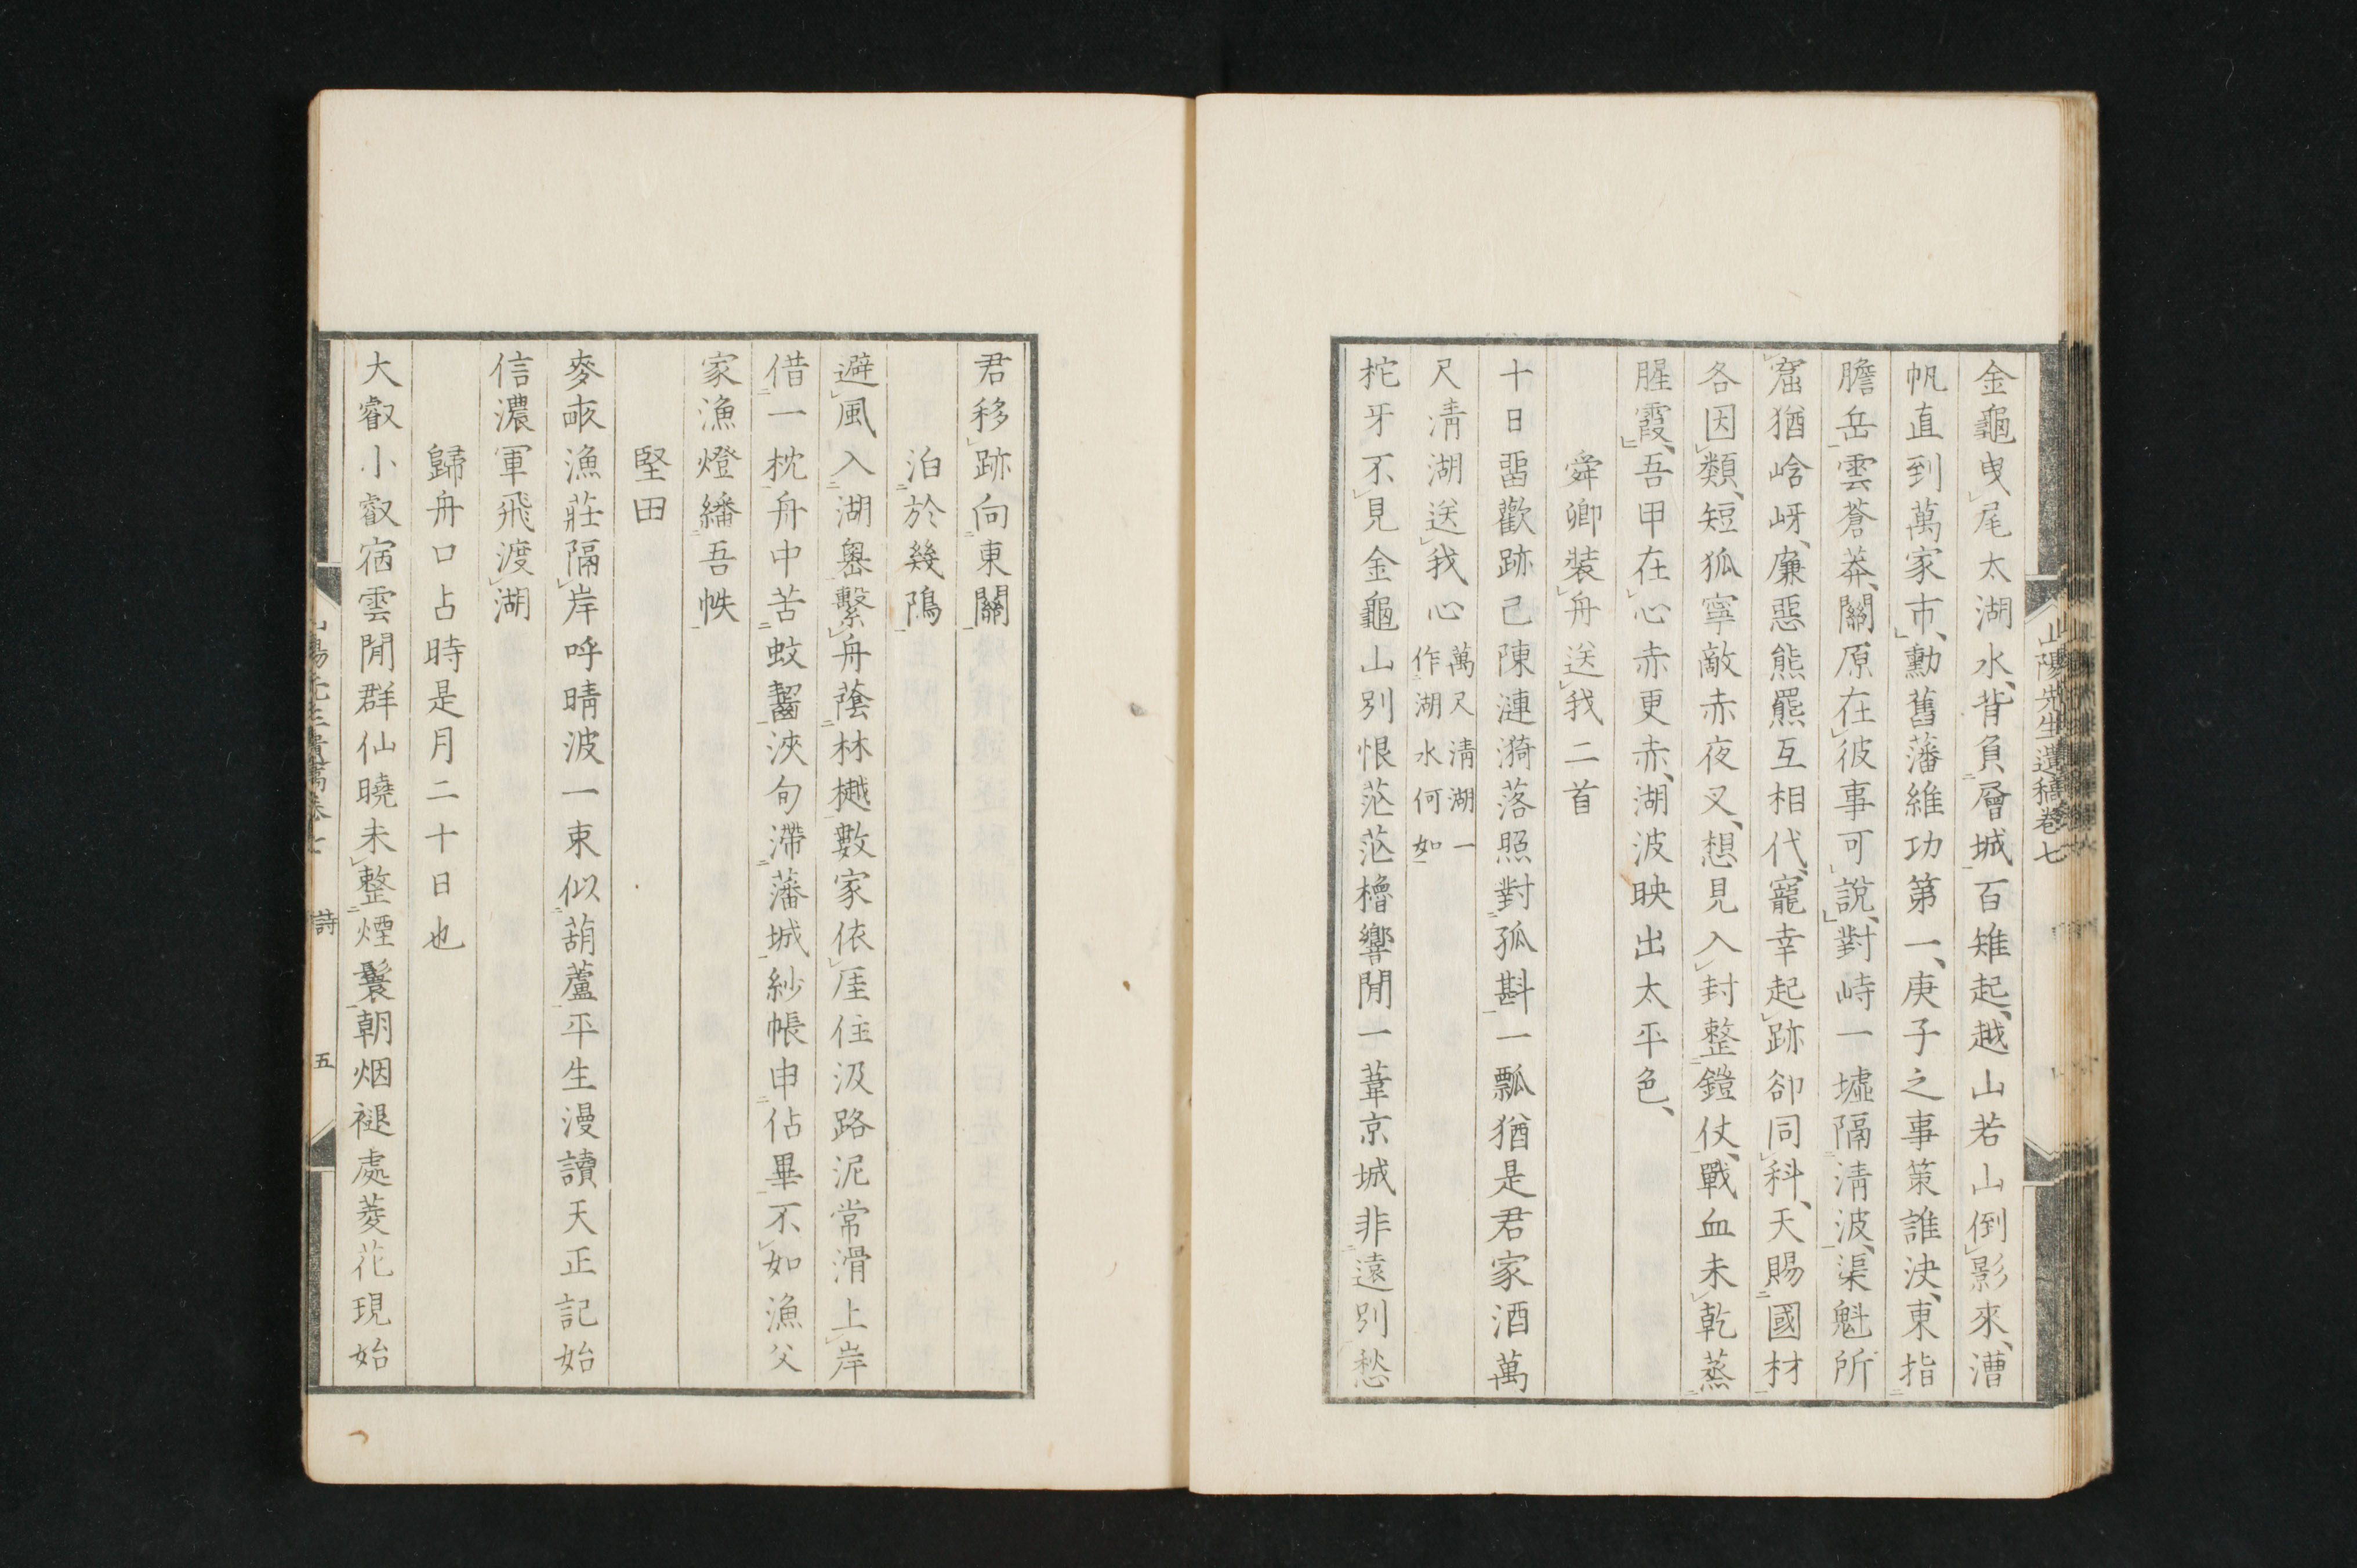 山陽先生遺稿卷七
金龜曳尾太湖水、背負層城百雉起、越山若山倒影來、漕
帆直到萬家市、勳舊藩維功第一、庚子之事策誰決、東指
膽岳雲蒼莽、關原在彼事可說、對峙一墟隔淸波、渠魁所
窟猶崯岈、廉惡熊羆互相代、寵幸起跡卻同科、天賜國材
各因類、短狐寧敵赤夜叉、想見入封整鎧仗、戰血未乾蒸
腥霞、吾甲在心赤更赤、湖波映出太平色、
舜卿裝舟送我二首
十日畱歡跡已陳漣漪落照對孤斟一瓢猶是君家酒萬
尺淸湖送我心
萬尺淸湖一
作湖水何如
柁牙不見金龜山別恨茫茫櫓響閒一葦京城非遠別愁
君移跡向東關
泊於幾隝
避風入湖奧繫舟蔭林樾數家依厓住汲路泥常滑上岸
借一枕舟中苦蚊齧浹旬滯藩城紗帳申佔畢不如漁父
家漁燈繙吾帙
堅田
麥畝漁莊隔岸呼晴波一束似葫蘆平生漫讀天正記始
信濃軍飛渡湖
歸舟口占時是月二十日也
大叡小叡宿雲閒群仙曉未整煙鬟朝烟褪處菱花現始
詩
五